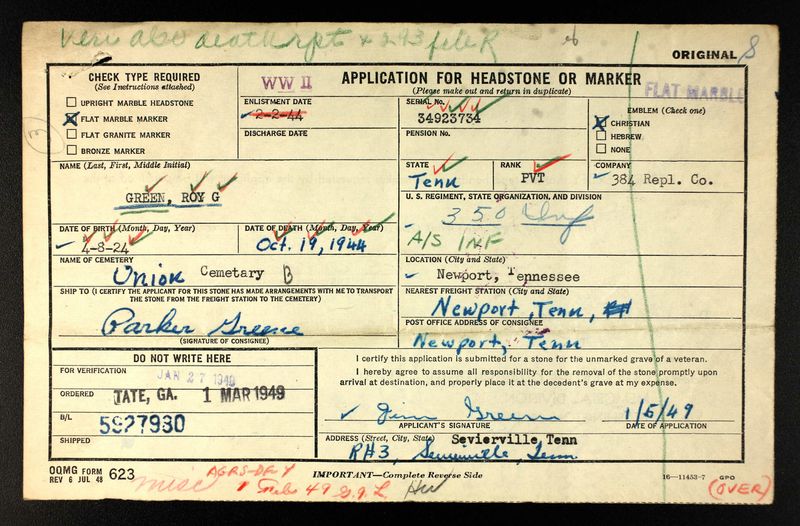 Veri also death rpt & 293 file R
ORIGINAL 8
CHECK TYPE REQUIRED
(See Instructions attached)
UPRIGHT MARBLE HEADSTONE
FLAT MARBLE MARKER
FLAT GRANITE MARKER
BRONZE MARKER
WW II
ENLISTMENT DATE
2-2-44
DISCHARGE DATE
APPLICATION FOR HEADSTONE OR MARKER
(Please make out and return in duplicate)
FLAT MARBLE
SERIAL No.
34923734
PENSION No.
EMBLEM (Check one)
CHRISTIAN
HEBREW
NONE
NAME (Last, First, Middle Initial)
GREEN, ROY G
STATE
Tenn
RANK
PVT
COMPANY
384 Repl. Co.
U. S. REGIMENT, STATE ORGANIZATION, AND DIVISION
350 Inf
A/S INF
DATE OF BIRTH (Month, Day, Year)
4-8-24
DATE OF DEATH (Month, Day, Year)
Oct. 19, 1944
NAME OF CEMETERY
Union Cemetary B
LOCATION (City and State)
Newport, Tennessee
SHIP TO (I CERTIFY THE APPLICANT FOR THIS STONE HAS MADE ARRANGEMENTS WITH ME TO TRANSPORT
THE STONE FROM THE FREIGHT STATION TO THE CEMETERY)
Parker Greene
(SIGNATURE OF CONSIGNEE)
NEAREST FREIGHT STATION (City and State)
Newport, Tenn,
POST OFFICE ADDRESS OF CONSIGNEE
Newport, Tenn
DO NOT WRITE HERE
FOR VERIFICATION
JAN 27 1949
ORDERED
TATE, GA. 1 MAR 1949
B/L
5927980
SHIPPED
I certify this application is submitted for a stone for the unmarked grave of a veteran.
I hereby agree to assume all responsibility for the removal of the stone promptly upon
arrival at destination, and properly place it at the decedent's grave at my expense.
Jim Green 1/5/49
APPLICANT'S SIGNATURE DATE OF APPLICATION
ADDRESS (Street, City, State) Sevierville, Tenn
R#3, Sevierville, Tenn
OQMG FORM 623
REV 6 JUL 48
misc
AGRS-DF Y
IMPORTANT—Complete Reverse Side
16—11453-7 GPO
(OVER)